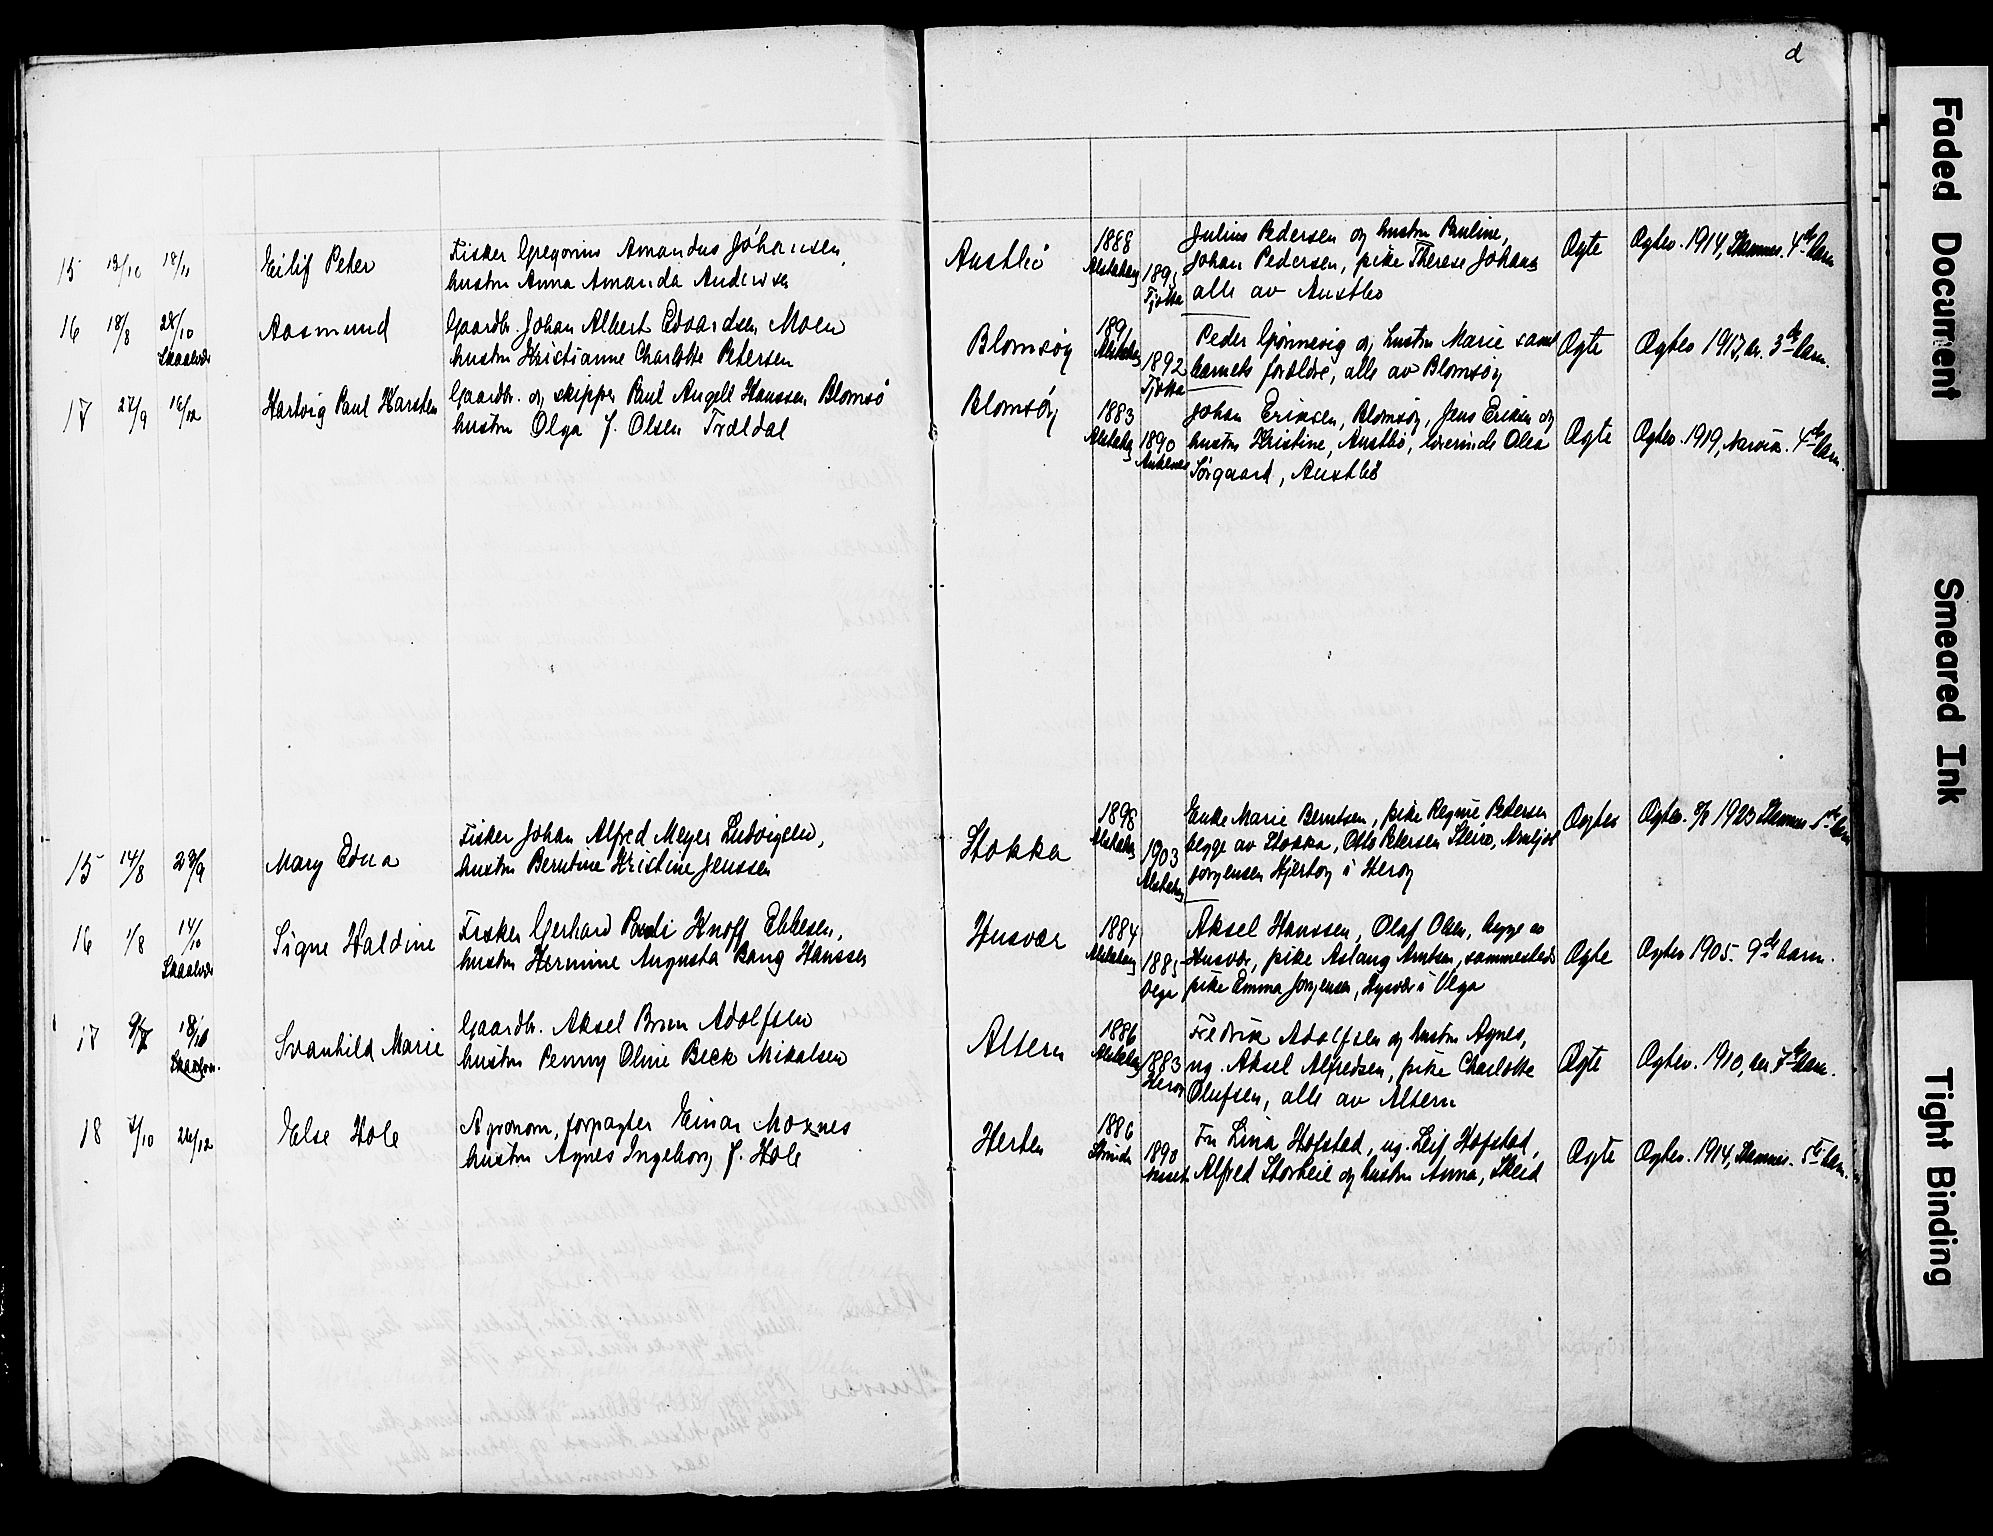 d
15 13/10 18/11 Eilif Peter Fisker Gregorius Amandus Johansen,
hustru Anna Amanda Andersen
Austbö 1888 Alstahaug Tjøtta
Julius Pedersen og hustru Pauline,
Johan Pedersen, pike Therese Johans
alle av Austbö
Ægte Ægtev. 1914, Stamnes. 4de barn
16 18/8 28/10 Skaalvær Aasmund Gaardbr. Johan Albert Edvardsen Moen
hustru Kristianne Charlotte Petersen
Blomsöy 1891 Alstahaug 1892 Tjøtta
Peder Grönnevig og hustru Marie samt
barnets forældre, alle av Blomsöy
Ægte Ægtev 1917, 3die barn.
17 27/9 16/12 Hartvig Paul Harsten Gaardbr. og skipper Paul Angell Hanssen Blomsö
hustru Olga J. Olsen Trældal
Blomsöy 1883 Alstahaug 1890 Ankenes
Johan Eriksen, Blomsöy, Jens Eriksen og
hustru Kristine, Austbö, lærerinde Olea
Sörgaard, Austbö
Ægte Ægtev. 1919, Narvik. 4de barn.
15 14/8 23/9 Mary Edna Fisker Johan Alfred Meyer Ludvigsen,
hustru Berntine Kristine Jenssen
Stokka 1898 Alstahaug 1903 Alstahaug
Enke Marie Berntsen, pike Regine Petersen
begge av Stokka, Otto Petersen Steiro,
Jörgensen Hjertöy i Heröy
Ægte Ægtev. 1923 Stamnes 1ste barn
16 1/8 14/10 Skaalvær Signe Haldine Fisker Gerhard Pauli Knoff Ebbesen,
hustru Hermine Augusta Bang Hanssen
Husvær 1884 Alstahaug 1885 Vega
Aksel Hanssen, Olaf Olsen, begge av
Husvær, pike Aslaug Arntsen, sammesteds
pike Emma Jörgensen, Hysvær i Vega
Ægte Ægtev 1905. 9de barn.
17 9/7 18/10 Skaalvær. Svanhild Marie Gaardbr. Aksel Bruun Adolfsen
hustru Penny Oline Beck Mikalsen
Altern 1886 Alstahaug 1883 Heröy
Fredrik Adolfsen og hustru Agnes,
ug. Aksel Alfredsen, pike Charlotte
Olufsen, alle av Altern
Ægte Ægtev. 1910, 7de barn.
18 4/10 26/12 Else Hole Agronom, forpagter Einar Moxnes
hustru Agnes Ingeborg J. Hole
Herten 1886 Strinda 1890 Nesset
Fru Lina Hofstad, ug. Leif Hofstad,
Alfred Storheil og hustru Anna, Skeid
Ægte Ægtev. 1914, Stamnes. 5te barn.
Faded Document
Smeared Ink
Tight Binding